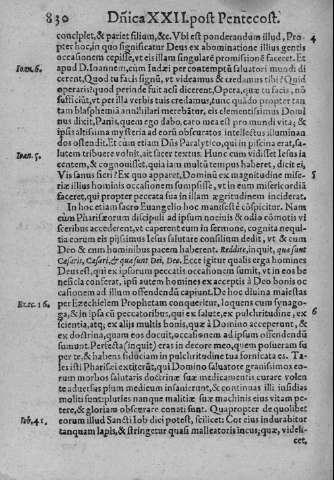 830 Dñica XXII. post Pentecost.
concipiet, & pariet filium, &c. Vbi est ponderandum illud, Pro-
pter hoc, in quo significatur Deus ex abominatione illius gentis 4
occasionem cepisse, vt eis illam singularē promissionē faceret. Et
Ioan. 6. apud D. Ioannem, cum Iudæi per contemptū saluatori mundi di
cerent, Quod tu facis signū, vt videamus & credamus tibi? Quid
operaris? quod perinde fuit ac si dicerent, Opera, quæ tu facis, nō
sufficiūt, vt per illa verbis tuis credamus, tunc quādo propter tan
tam blasphemiā annihilari merebātur, eis clementissimus Domi
nus dixit, Panis, quem ego dabo, caro mea est pro mundi vita; &
ipsis altissima mysteria ad eorū obscuratos intellectus illuminan
dos ostendit. Et cum etiam Dñs Paralytico, qui in piscina erat, sa-
Ioan. 5. lutem tribuere voluit, ait sacer textus. Hunc cum vidisset Iesus ia
centem, & cognouisset, quia iam multū tempus haberet, dicit ei,
Vis sanus fieri? Ex quo apparet, Dominū ex magnitudine mise- 5
riæ illius hominis occasionem sumpsisse, vt in eum misericordiā
faceret, qui propter peccata sua in illam ægritudinem inciderat.
In hoc etiam sacro Euangelio hoc manifestè cōspicitur. Nam
cum Pharisæorum discipuli ad ipsum nociuis & odio cōmotis vi
sceribus accederent, vt caperent eum in sermone, cognita nequi-
tia eorum eis pijssimus Iesus salutare consilium dedit, vt & cum
Deo & cum hominibus pacem haberent. Reddite, inquit, quæ sunt
Cæsaris, Cæsari, & quæ sunt Dei, Deo. Ecce igitur qualis erga homines
Deus est, qui ex ipsorum peccatis occasionem sumit, vt in eos be
neficia conferat, ipsi autem homines ex acceptis à Deo bonis oc
casionem ad illum offendendū capiunt. De hoc diuina maiestas
Ezec. 16. per Ezechielem Prophetam conqueritur, loquens cum synago-
ga, & in ipsa cū peccatoribus, qui ex salute, ex pulchritudine, ex 6
scientia, atq; ex alijs multis bonis, quæ à Domino acceperunt, &
ex doctrina, quam eos docuit, occasionem ad ipsum offendendū
sumunt. Perfecta (inquit) eras in decore meo, quem posueram su
per te, & habens fiduciam in pulchritudine tua fornicata es. Ta-
les isti Pharisæi extiterūt, qui Domino saluatore grauissimos eo-
rum morbos salutaris doctrinæ suæ medicamentis curare volen
te aduersus pium medicum insanierunt, & continuas illi insidias
moliti sunt: pluries nanque malitiæ suæ machinis eius vitam pe-
tere, & gloriam obscurare conati sunt. Quapropter de quolibet
Iob. 41. eorum illud Sancti Iob dici potest, scilicet: Cor eius indurabitur
tanquam lapis, & stringetur quasi malleatoris incus; quæ, videli-
cet,